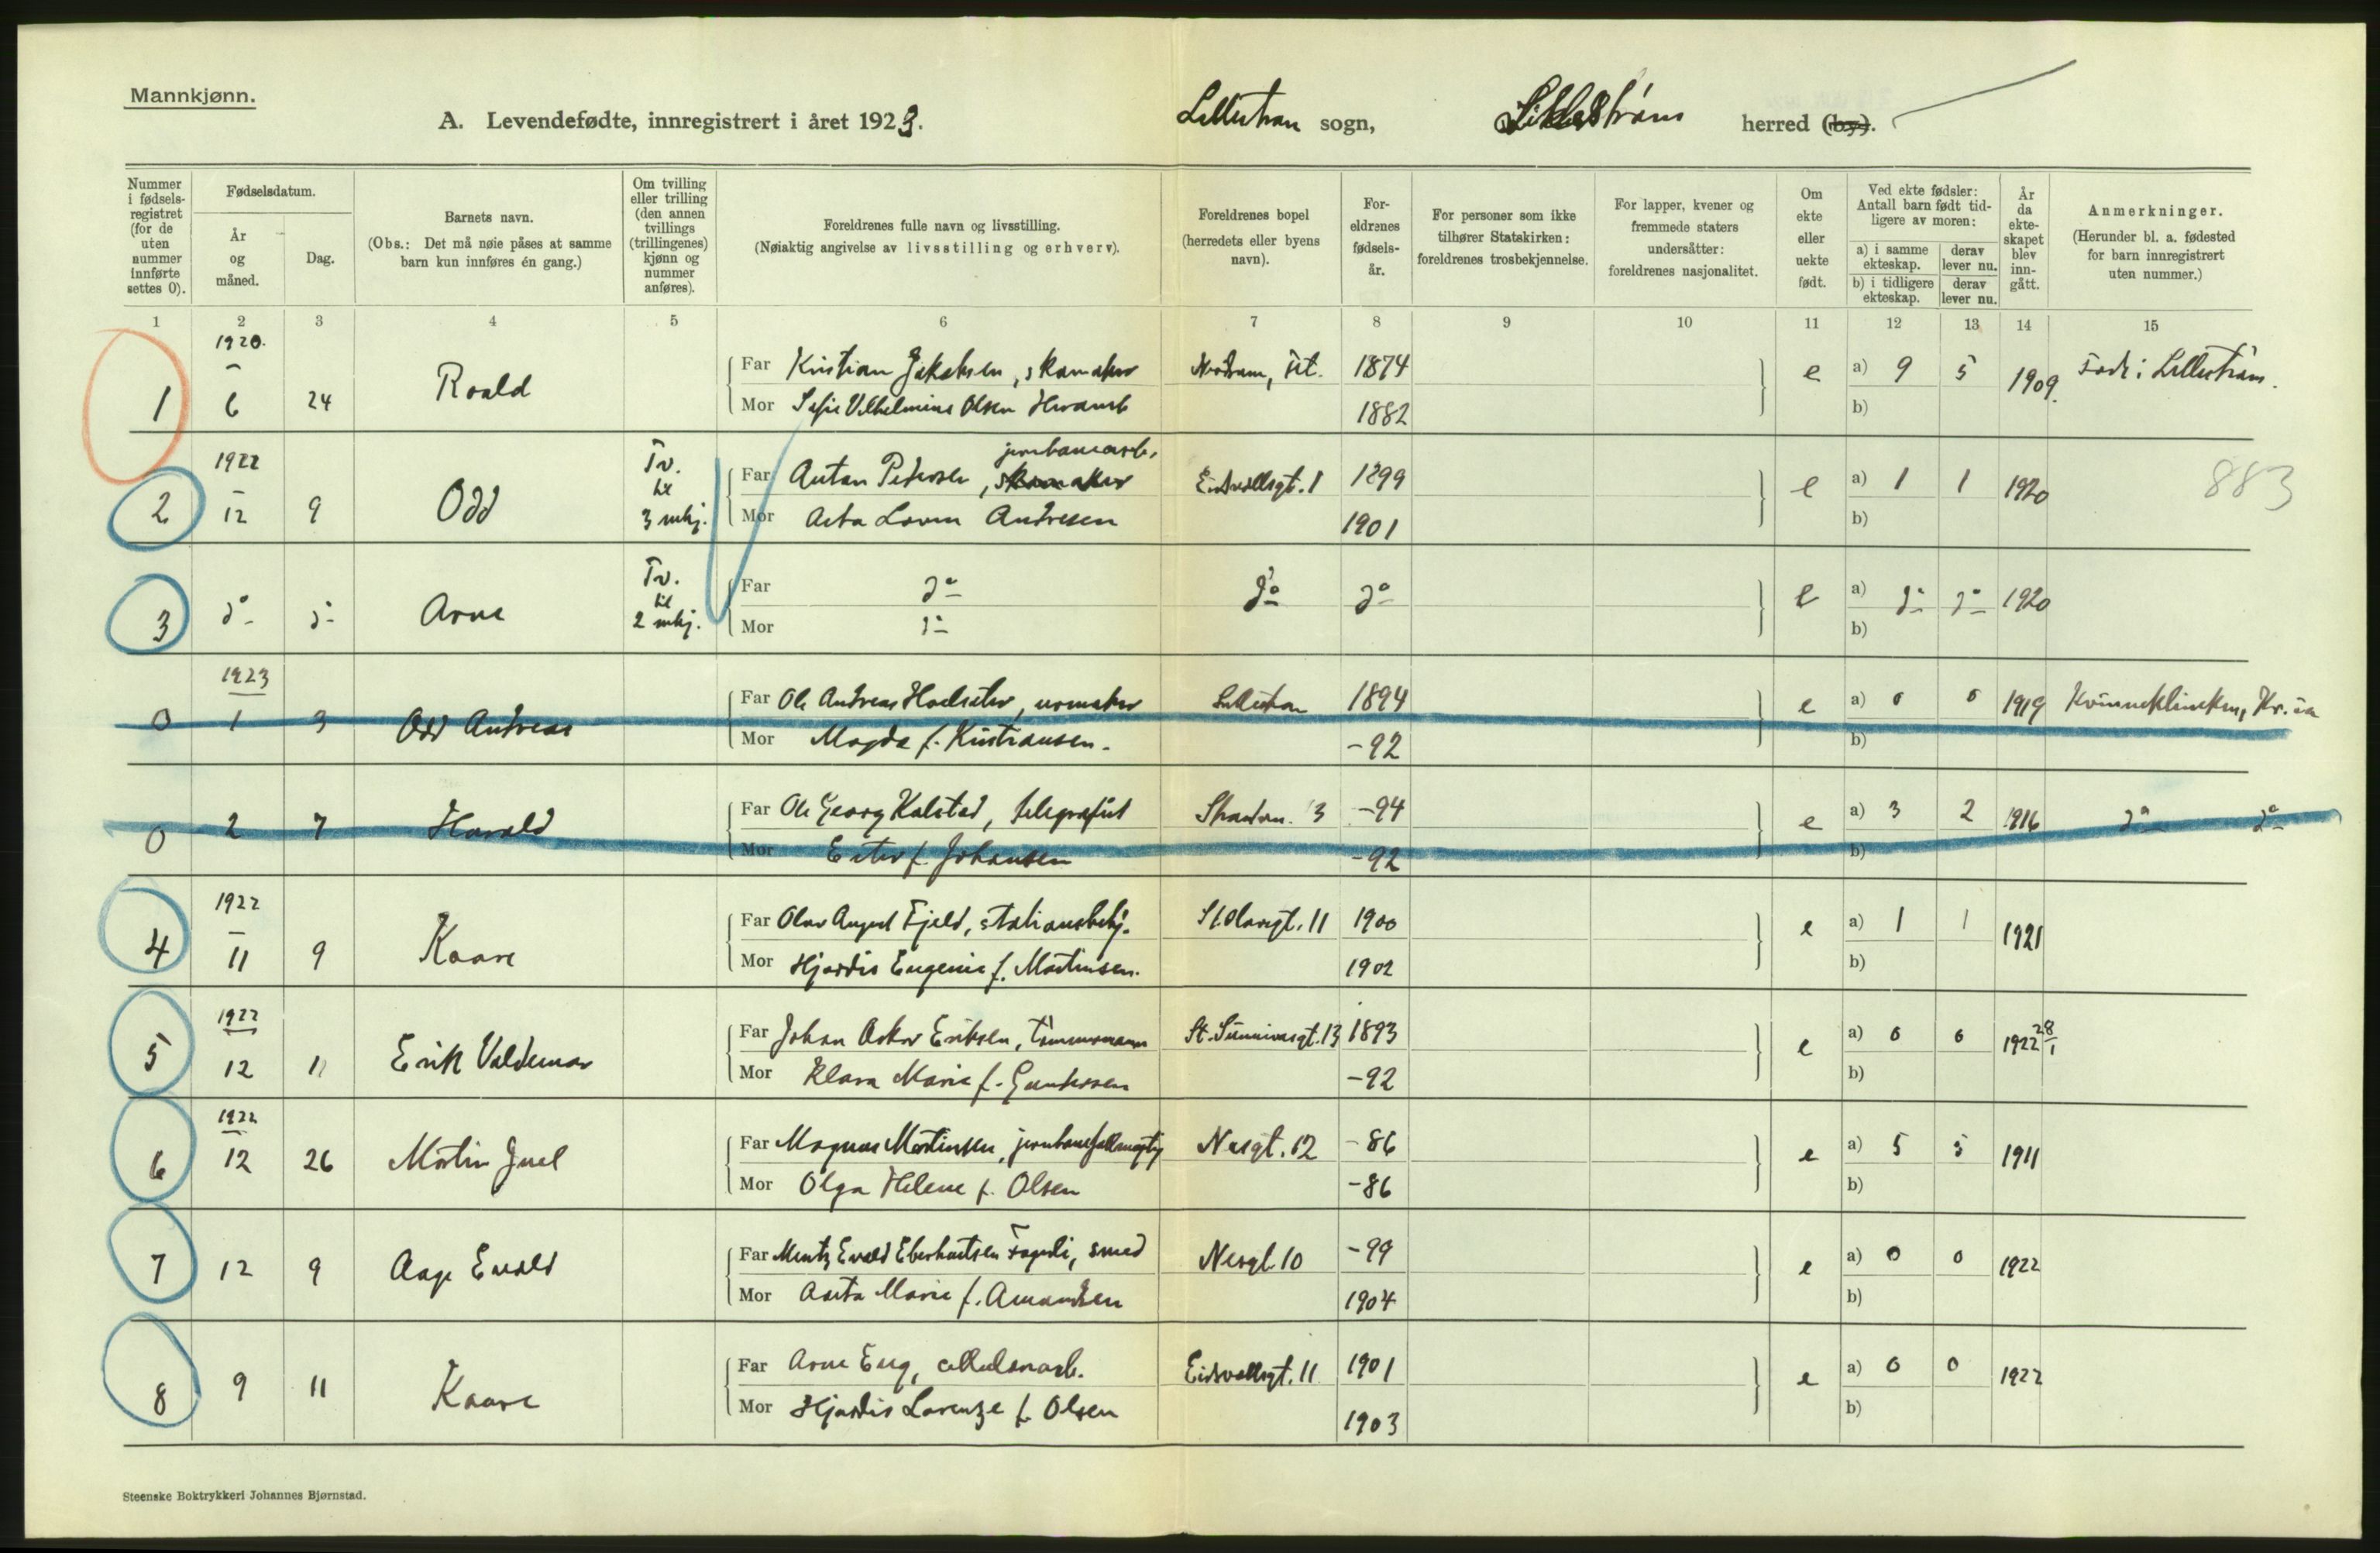 Mannkjønn.
A. Levendefødte, innregistrert i året 1923.
Lillestrøm sogn, Lillestrøm herred (by).
Nummer i fødsels-registret (for de uten nummer innførte settes 0).
Fødselsdatum.
År og måned.
Dag.
Barnets navn.
(Obs.: Det må nøie påses at samme barn kun innføres én gang.)
Om tvilling eller trilling (den annen tvillings (trillingenes) kjønn og nummer anføres).
Foreldrenes fulle navn og livsstilling.
(Nøiaktig angivelse av livsstilling og erhverv).
Foreldrenes bopel (herredets eller byens navn).
For-eldrenes fødsels-år.
For personer som ikke tilhører Statskirken: foreldrenes trosbekjennelse.
For lapper, kvener og fremmede staters undersåtter: foreldrenes nasjonalitet.
Om ekte eller uekte født.
Ved ekte fødsler: Antall barn født tid-ligere av moren:
a) i samme ekteskap.
derav lever nu.
b) i tidligere ekteskap.
derav lever nu.
År da ekte-skapet blev inn-gått.
Anmerkninger.
(Herunder bl. a. fødested for barn innregistrert uten nummer.)
1 2 3 4 5 6 7 8 9 10 11 12 13 14 15
1920.
1 6 24 Roald
Far Kristian Jakobsen, skomaker 1874 e a) 9 5 1909. Født i Lillestrøm.
Mor Sofie Vilhelmine Olsen 1882 b)
1922 Tv. til 3 mkj. jernbanearb.
2 12 9 Odd
Far Anton Pedersen, skomaker Eidsvollsgt. 1 1899 e a) 1 1 1920 883
Mor Asta Andresen 1901 b)
Tv. til 2 mkj.
3 do do Arne
Far do do do e a) do do 1920
Mor do b)
1923
0 1 3 Odd Andreas
Far Ole Andreas, urmaker Lillestrøm 1894 e a) 0 0 1919 Kvinneklinikken, Kr.ia
Mor Magda f. Kristiansen. -92 b)
0 2 7 Harald
Far Ole Georg Kalstad, telegrafist 3 -94 e a) 3 2 1916 do do
Mor Ester f. Johansen -92 b)
1922
4 11 9 Kaare
Far Olav August Fjeld, stationsbetj. St. Olavsgt. 11 1900 e a) 1 1 1921
Mor Hjørdis Eugenie f. Martinsen. 1902 b)
1922
5 12 11 Erik Valdemar
Far Johan Oskar Eriksen, tømmermann St. Sunnivasgt. 13 1893 e a) 0 0 1922 28/1
Mor Klara Marie f. Gundersen -92 b)
1922
6 12 26 Martin Juel
Far Magnus Martinsen, jernbanefullmegtig Nesgt. 12 -86 e a) 5 5 1911
Mor Olga Helene f. Olsen -86 b)
7 12 9 Aage Evald
Far Mentz Evald Eberhartsen Fagerli, smed Nesgt. 10 -99 e a) 0 0 1922
Mor Marie f. Amundsen 1904 b)
8 9 11 Kaare
Far Arne Eng, cellulosearb. Eidsvollsgt. 11 1901 e a) 0 0 1922
Mor Hjørdis Lorenze f. Olsen 1903 b)
Steenske Boktrykkeri Johannes Bjørnstad.